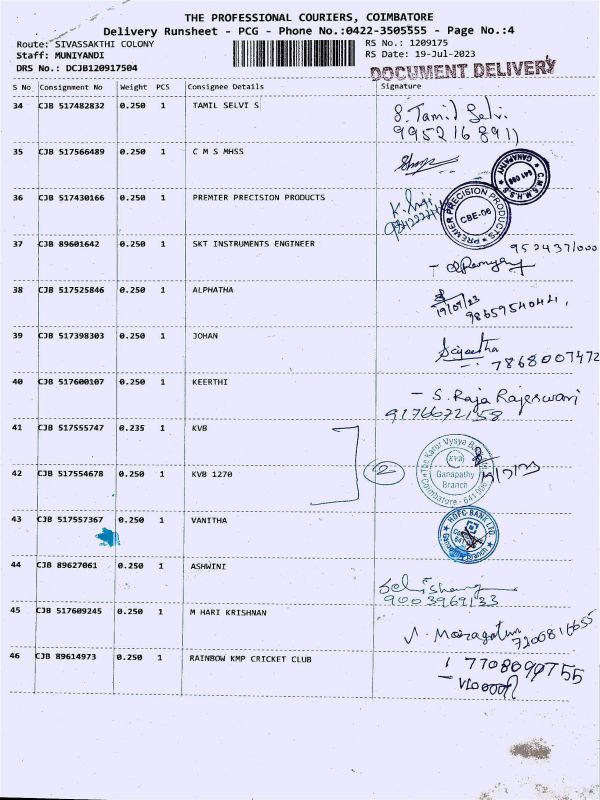 THE PROFESSIONAL COURIERS, COIMBATORE
Delivery Runsheet - PCG - Phone No.:0422-3505555 - Page No.:4
Route: SIVASSAKTHI COLONY RS No.: 1209175
Staff: MUNIYANDI RS Date: 19-Jul-2023
DRS No.: DCJB120917504 DOCUMENT DELIVERY
S No Consignment No Weight PCS Consignee Details Signature
34 CJB 517482832 0.250 1 TAMIL SELVI S S. Tamil Selvi
9952168911
35 CJB 517566489 0.250 1 C M S MHSS
GANAPATHY 641 006 C.M.S. M.H.S.S
36 CJB 517430166 0.250 1 PREMIER PRECISION PRODUCTS
PREMIER PRECISION PRODUCTS CBE-06
37 CJB 89601642 0.250 1 SKT INSTRUMENTS ENGINEER 9524371000
38 CJB 517525846 0.250 1 ALPHATHA
19/07/23 9865954044
39 CJB 517398303 0.250 1 JOHAN
7868007472
40 CJB 517600107 0.250 1 KEERTHI - S. Raja Rajeswari
9176672158
41 CJB 517555747 0.235 1 KVB
The Karur Vysya Bank KVB Ganapathy Branch Coimbatore - 641 006
42 CJB 517554678 0.250 1 KVB 1270 2
43 CJB 517557367 0.250 1 VANITHA
HDFC BANK LTD Ganapathy Branch
44 CJB 89627061 0.250 1 ASHWINI
9003969133
45 CJB 517609245 0.250 1 M HARI KRISHNAN
7200816655
46 CJB 89614973 0.250 1 RAINBOW KMP CRICKET CLUB 7708090755